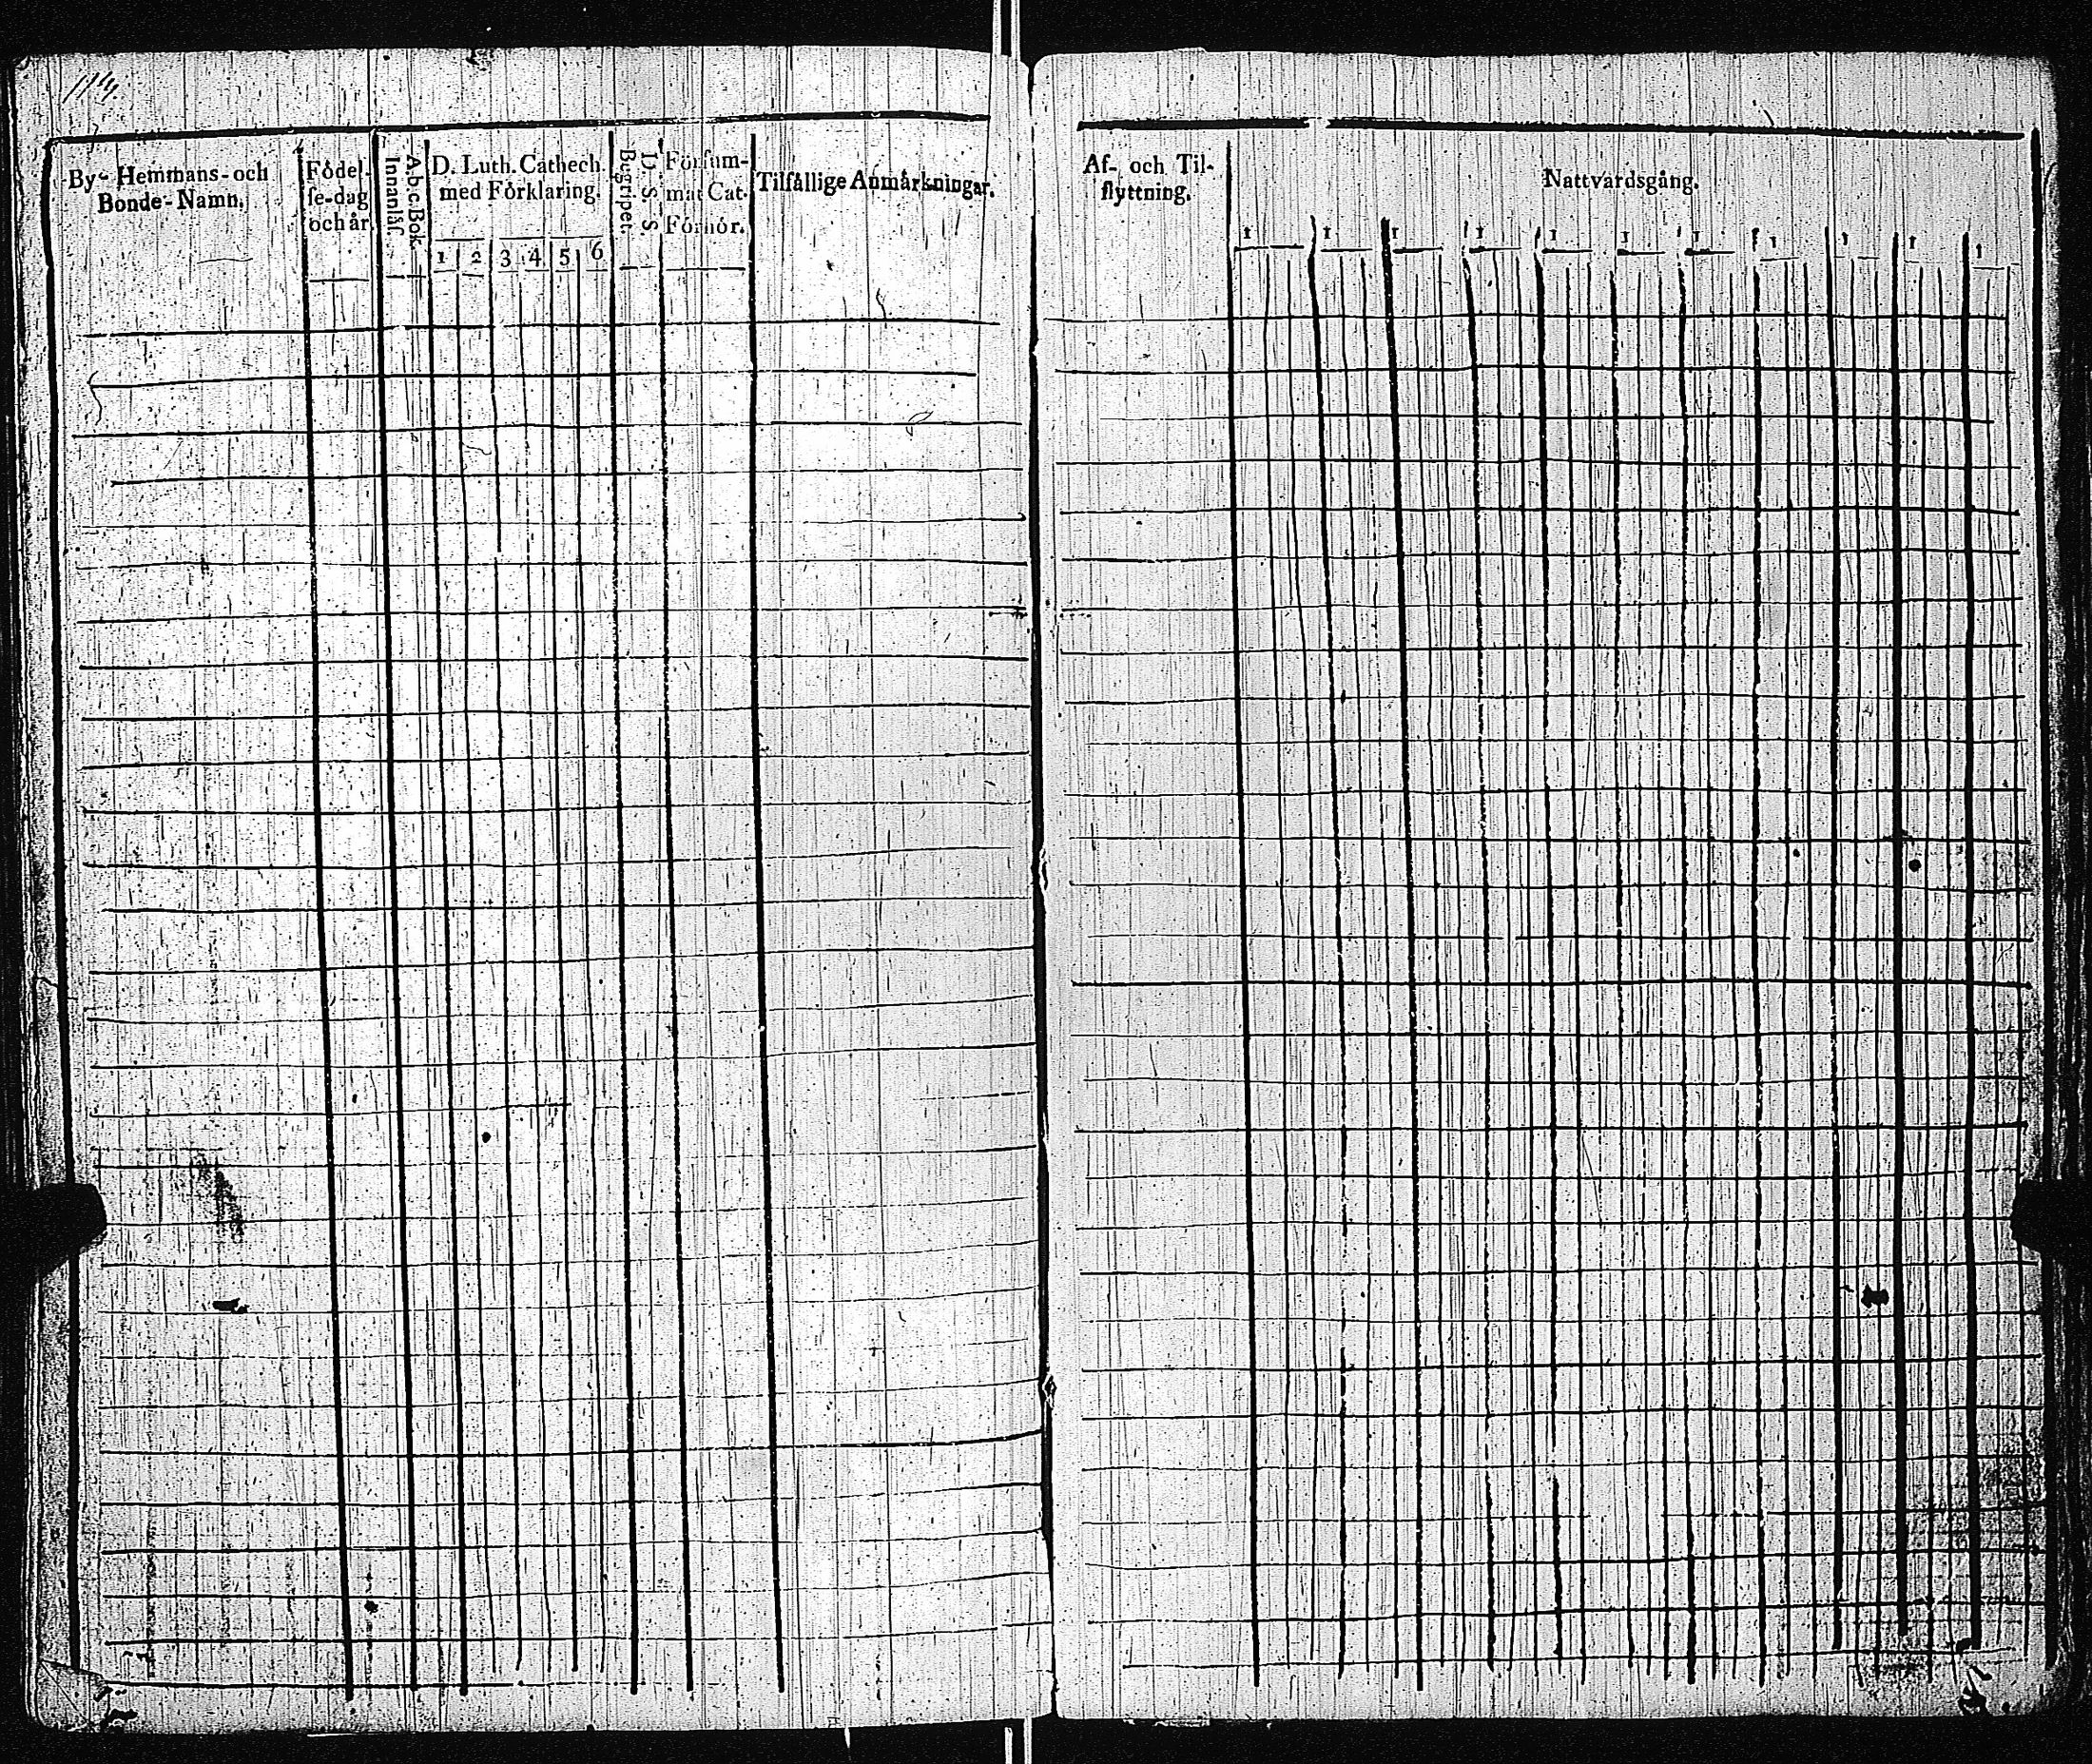 114
By- Hemmans- och
Bonde- Namn.
Födel-
se-dag
och år
A.b.c.Bok.
Innanläs.
D. Luth. Cathech.
med Förklaring.
1 2 3 4 5 6
D. S. S
Begripet.
Försum-
mat Cat.
Förhör.
Tilfällige Anmärkningar.
Af- och Til-
flyttning.
Nattvardsgång.
1 1 1 1 1 1 1 1 1 1 1